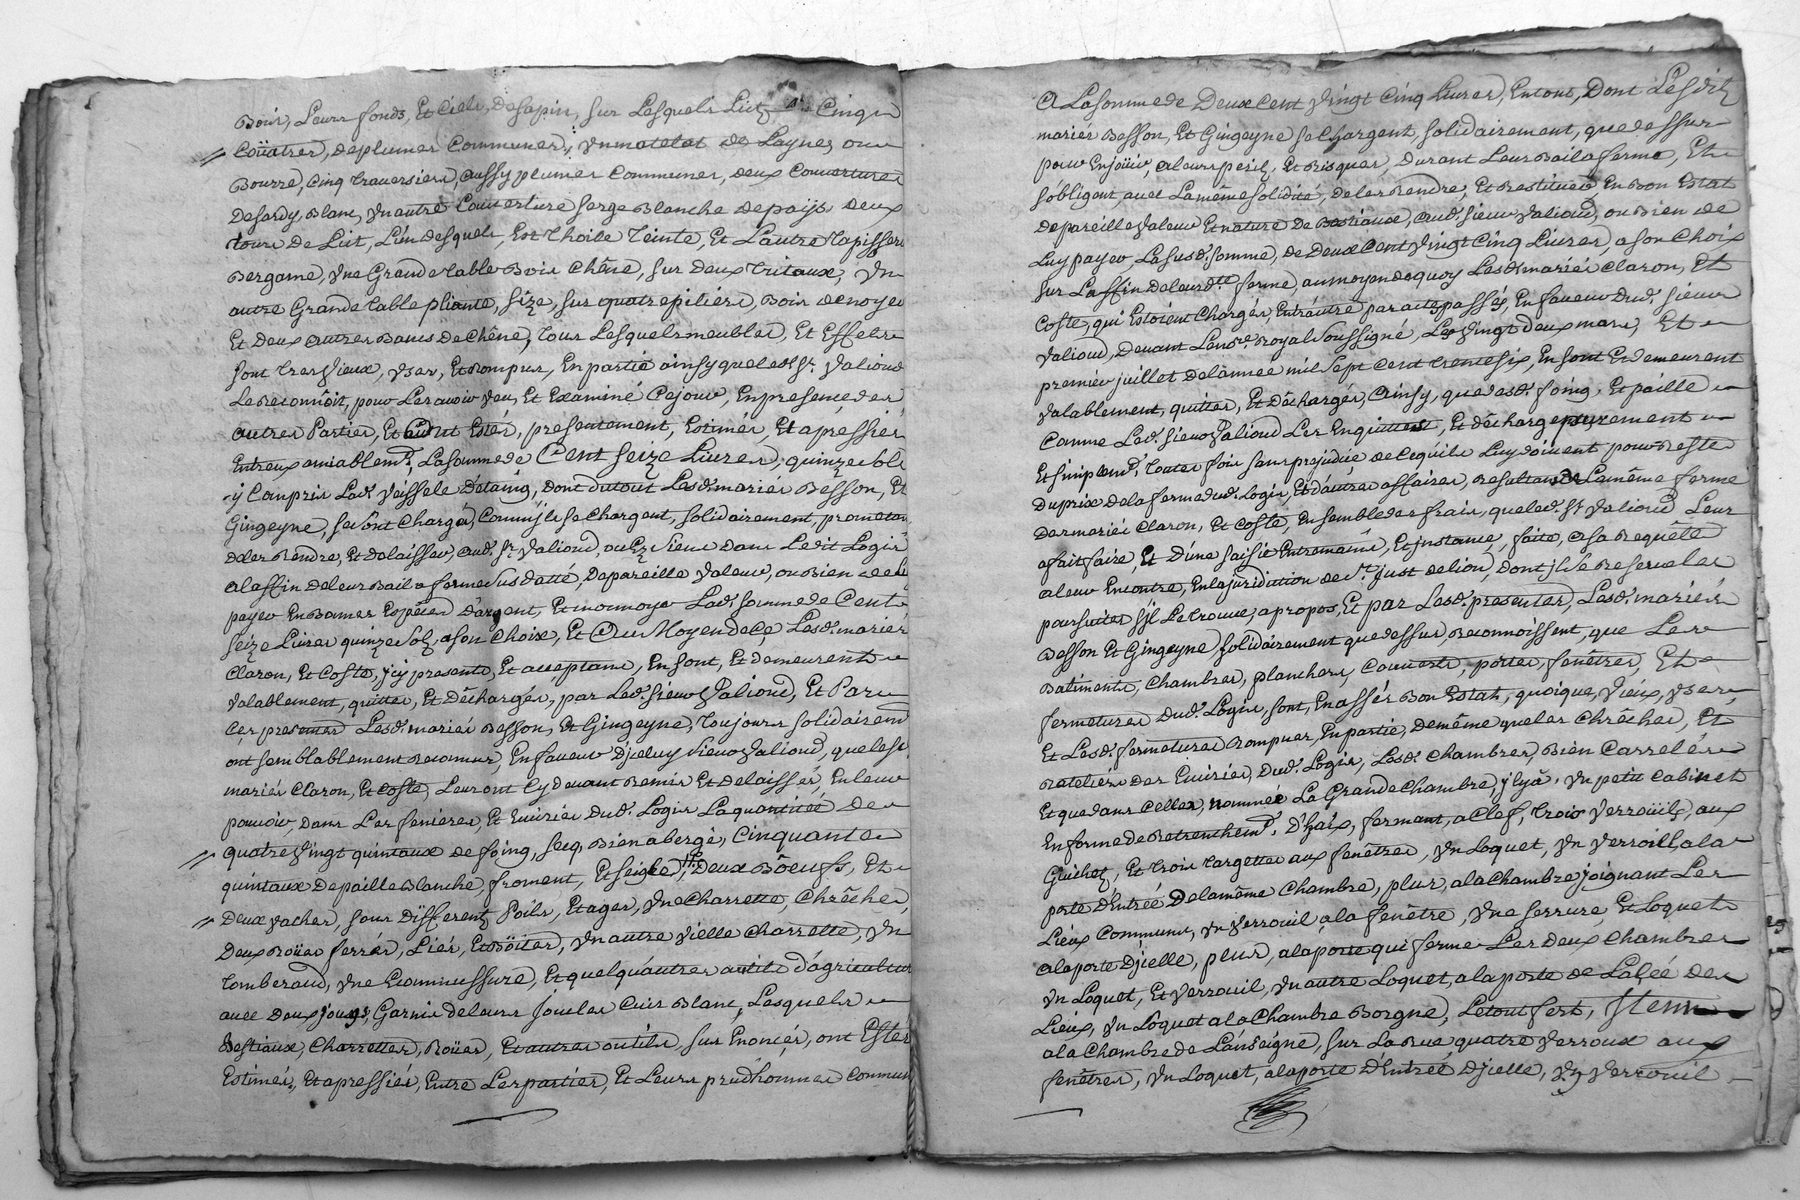 Bois, Leurs fonds, Et Ciels, De sapin, sur Lesquels Lictz, Cinq
Coüatres, de plumes Communes, Un matelat de Laynes ou
Bourre, cinq traversiers, aussy plumes Communes, deux Couvertures
De Sardy Blanc, Un autre Couverture serge Blanche de païs deux
tours De Lict, L'un desquels, Est thoile teinte, Et L'autre tapisserie
Bergame, Une Grande table Bois Chêne, sur Deux tritaux, Un
autre Grande table pliante, sur quatre piliers, Bois de noyer
Et Deux autres Bancs De Chêne, tous Lesquels meubles, Et Effets
sont tres Vieux, Usez, Et Rompus, En partie ainsy que led. Sr. Valioud
Le Reconnoit, pour Les avoir Veu, Et Examiné Ce jour, En presence des
autres Parties, Et ont Estés, presentement, Estimés, Et apressiés
Entreux amiablemt. La somme de Cent Seize Livres, quinze sols
y Compris Lad. Veissele D'étaing, dont du tout Lesd. mariés Besson, Et
Gingeyne, se sont Chargés, Comm'jls se Chargent, solidairement, promettant
de les Rendre, Et delaisser, aud. Sr. Valioud, ou Ez siens Dans Ledit Logis
a la ffin de Leur Bail a ferme susdatté, De pareille Valeur, ou Bien de Le
payer En Bonnes Espêces D'argent, Et monnoye Lad. somme de Cent
seize Livres quinze Solz, a son Choix, Et Au Moyen de Ce Lesd. mariés
Claron, Et Coste, jcy presents, Et acceptans, En sont, Et demeurent
Valablement, quittes, Et Déchargés, par Led. sieur Valioud, Et Par
Ces presentes Lesd. mariés Besson, Et Gingeyne, toujours solidairemt.
ont semblablement Reconnus, En faveur D'jceluy sieur Valioud, que lesd.
mariés Claron, Et Coste, Leur ont Cy devant Remis Et Delaissés, En leur
pouvoir, Dans Les fenieres, Et Ecuiries Dud. Logis La quantité de
quatre Vingt quintaux de foing, secq, Bien abergé, Cinquante
quintaux De paille Blanche, froment, Et seigle, Deux Bôeufs, Et
Deux Vaches, sous Different Poils, Et ages, Une Charrette, Chrêches,
Deux Roües ferrées, Liés, Et Boites, Un autre Vielle Charrette, Un
tomberaud, Une Ecommussure, Et quelqu'autres outils d'agriculture
avec Deux jougs, Garnis de leurs joucles Cuir Blanc, Lesquels
Bestiaux, Charrettes, Roües, Et autres outils, sus Enoncés, ont Estés
Estimés, Et apressiés, Entre Les parties, Et Leurs prud'hommes Communs
A La somme de Deux Cent Vingt Cinq Livres, En tout, Dont Lesditz
mariés Besson, Et Gingeyne se Chargent, solidairement, que dessus
pour En joüir, a leurs peril, Et Risques, Durant Leur Bail a ferme, Et
s'obligent avec La même solidité, de les Rendre, Et Restituer En Bon Estat
de pareille Valeur Et nature De Bestiaux, aud. sieur Valioud, ou Bien de
Luy payer La susd. somme, de Deux Cent Vingt Cinq Livres, a son Choix
sur La ffin de leurdte. ferme, au moyen de quoy Lesd. mariés Claron, Et
Coste, qui Estoient Chargés, Entr'autre par acte passés, En faveur Dud. sieur
Valioud, Devant Le nore. Royal soussigné, Les Vingt deux mars, Et
premier juillet de l'année mil sept Cent trente six, En sont Et demeurent
Valablement, quittes, Et Déchargés, Ainsy, que desd. foing, Et paille
Comme Led. sieur Valioud Les En quitte, Et décharge purement
Et simplemt. toutes fois sans prejudice de Ce qu'ils Luy doivent pour Reste
Du prix de la ferme dud. Logis, Et d'autres affaires, Resultans de La même ferme
Des mariés Claron, Et Coste, Ensemble des frais, que led. Sr. Valioud Leur
a fait faire, Et D'une saisie Entremains, Et jnstance, faite, a sa Requête
a leur Encontre, En la juridiction de St. Just de lion, dont jl se Reserve les
poursuites s'jl Le trouve, a propos, Et par Lesd. presentes, Lesd. mariés
Besson Et Gingeyne solidairement que dessus, Reconnoissent, que Les
Batiments, Chambres, planchers, Couverts, portes, fenêtres, Et
fermetures Dud. Logis, sont, En assés Bon Estat, quoique, Vieux, Usés
Et Lesd. fermetures Rompues, En partie, De même que les Chrêches, Et
Rateliers des Ecuiries, Dud. Logis, Lesd. Chambres, Bien Carrelées
Et que dans Celles, nommée La Grande Chambre, jl y a, Un petit Cabinet
En forme de Retrenchemt. D'haïs, fermant, a Clef, trois Verroüils, aux
Guichetz, Et trois targettes aux fenêtres, Un Loquet, Un Verroüill, a la
porte D'Entrée De la même Chambre, plus, a la Chambre joignant Les
Lieux Communs, Un Verrouil a la fenêtre, Une serrure, Et Loquet
a la porte D'jcelle, plus, a la porte qui ferme Les Deux Chambres
Un Loquet, Et Verrouil, Un autre Loquet, a la porte de L'alée des
Lieux, Un Loquet a la Chambre Borgne, Le tout fert, Jtem
a la Chambre de L'anseigne, sur La Rue quatre Verroux aux
fenêtres, Un Loquet, a la porte D'Entrée D'jcelle, Un Verrouil